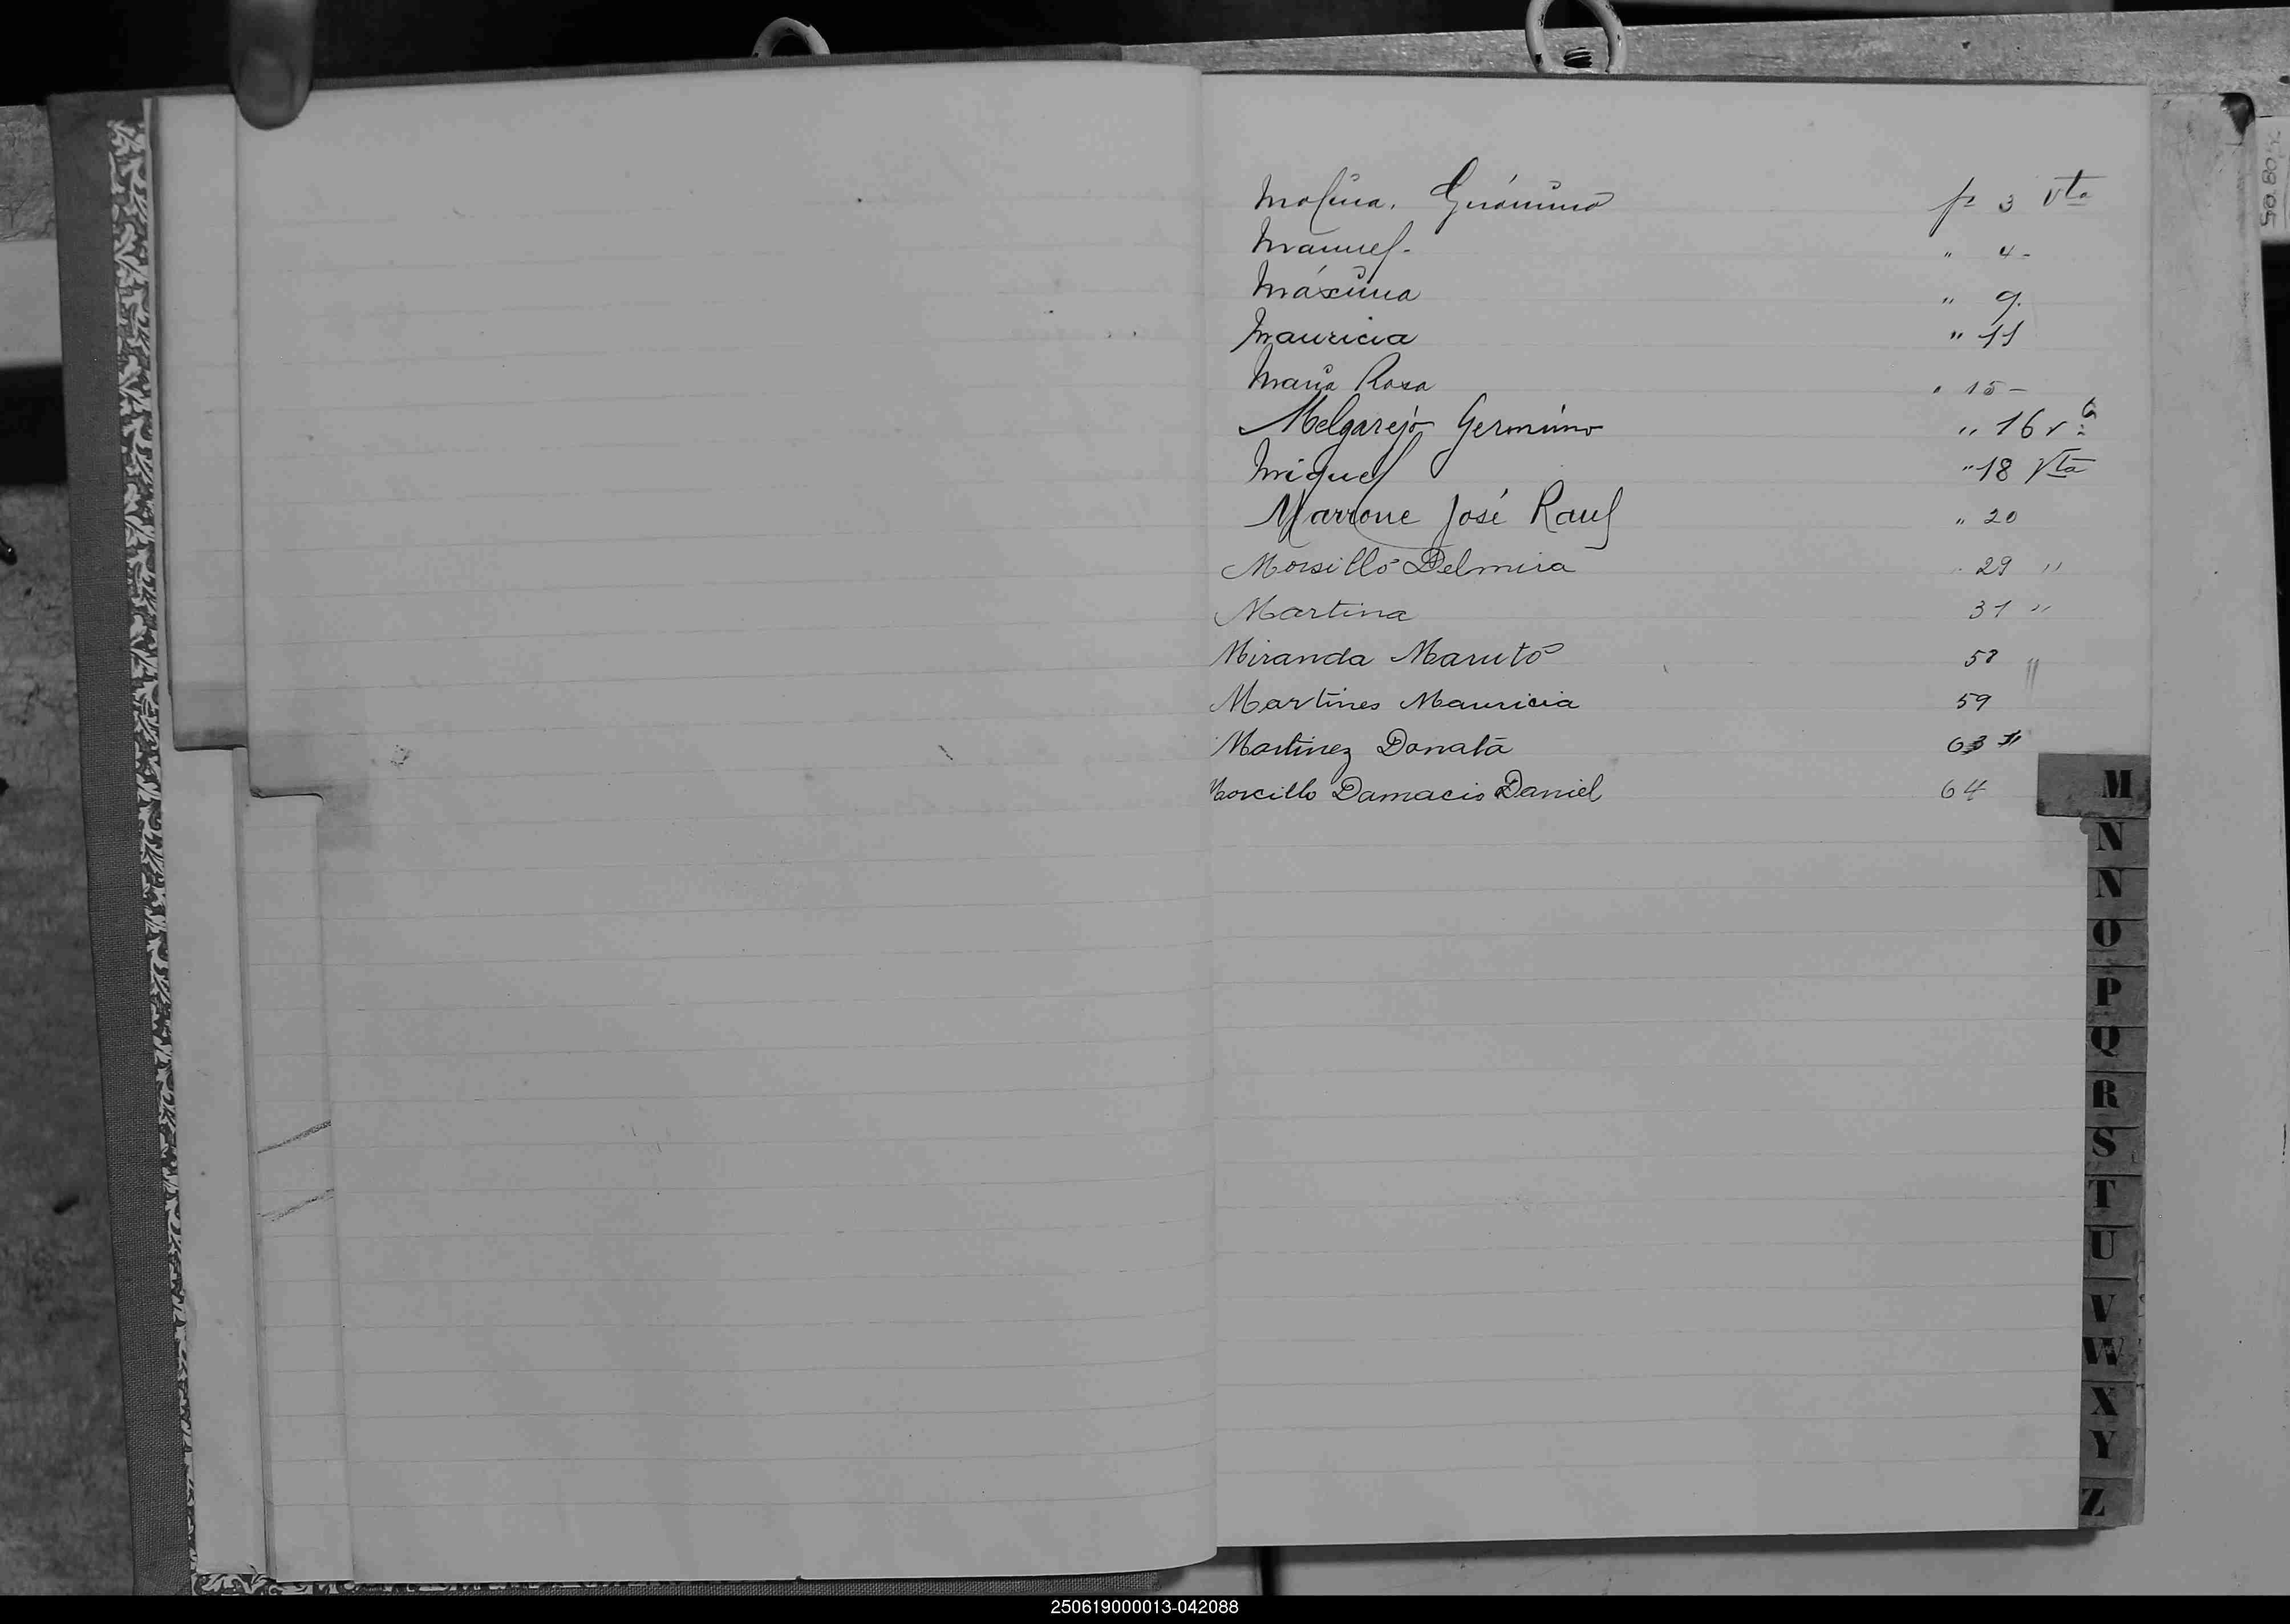 Molina, Gerónimo fs 3 Vta
Manuel - " 4 -
Máxima " 9.
Mauricia " 11
María Rosa " 15 -
Melgarejo Germino " 16 vta
Miguel " 18 Vta
Marrone José Raul " 20
Morsillo Delmira 29 "
Martina 31 "
Miranda Maruto 58 "
Martines Mauricia 59
Martinez Donata 63 "
Morcillo Damacio Daniel 64
M
N
N
O
P
Q
R
S
T
U
V
W
X
Y
Z
250619000013-042088